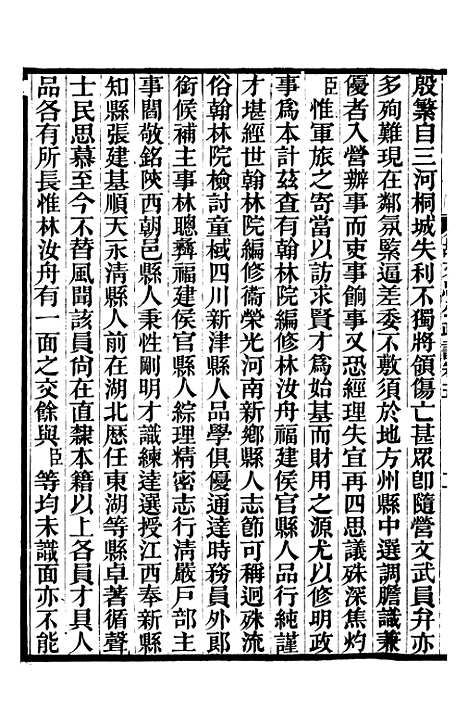 殷繁自三河桐城失利不獨將領傷亡甚眾卽隨營文武員弁亦
多殉難現在鄰氛緊逼差委不敷須於地方州縣中選調膽識兼
優者入營辦事而吏事餉事又恐經理失宜再四思議殊深焦灼
臣惟軍旅之寄當以訪求賢才爲始基而財用之源尤以修明政
事爲本計茲查有翰林院編修林汝舟福建侯官縣人品行純謹
才堪經世翰林院編修衞榮光河南新鄉縣人志節可稱迥殊流
俗翰林院檢討童棫四川新津縣人品學俱優通達時務員外郎
銜候補主事林聰彝福建侯官縣人綜理精密志行清嚴戶部主
事閻敬銘陝西朝邑縣人秉性剛明才識練達選授江西奉新縣
知縣張建基順天永清縣人前在湖北歷任東湖等縣卓著循聲
士民思慕至今不替風聞該員尙在直隸本籍以上各員才具人
品各有所長惟林汝舟有一面之交餘與臣等均未識面亦不能